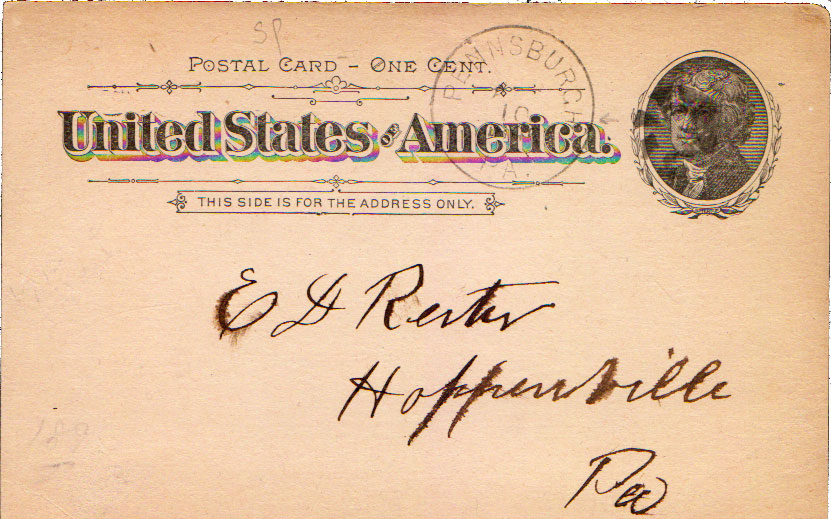 POSTAL CARD – ONE CENT.
United States of America.
THIS SIDE IS FOR THE ADDRESS ONLY.
PENNSBURGH
10
PA.
E D
Hoppenville
Pa